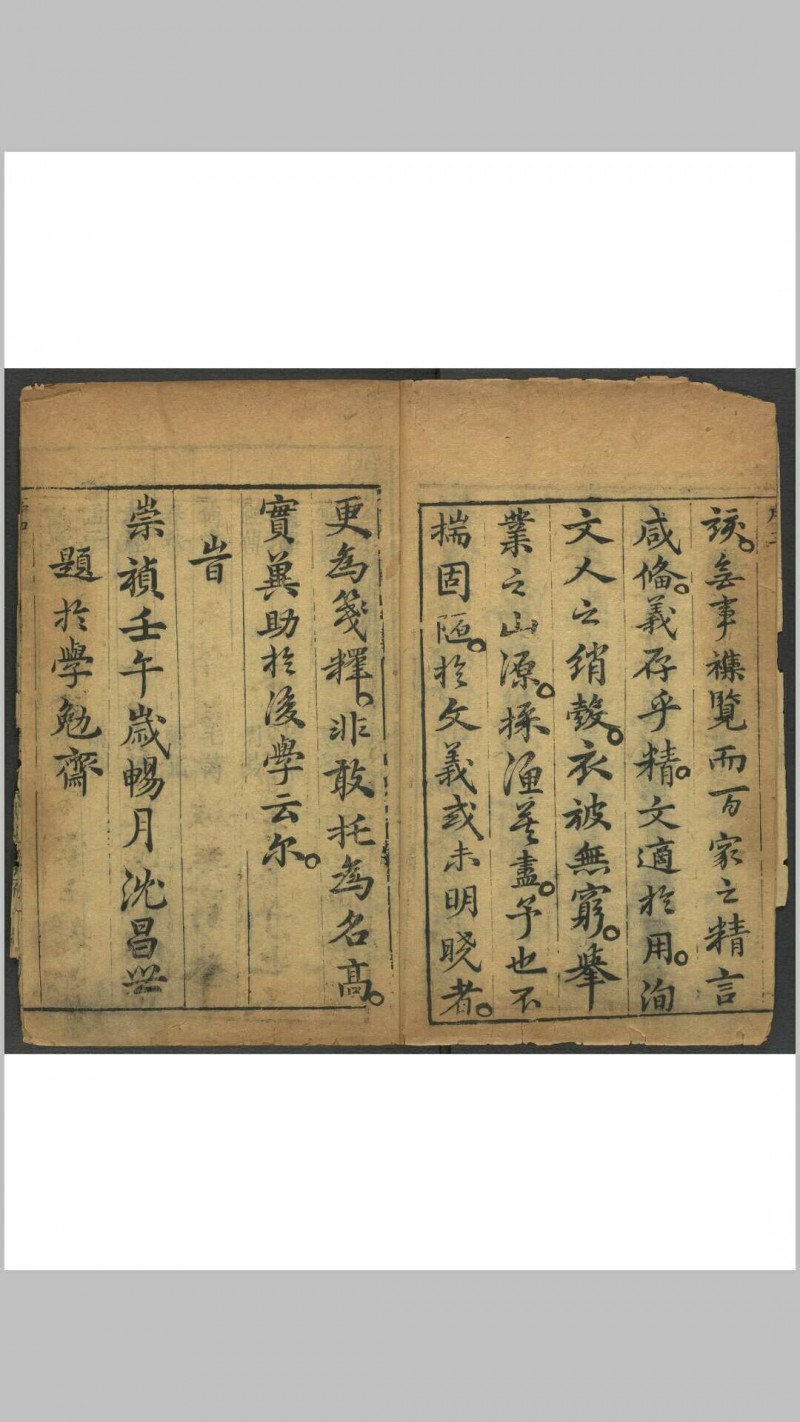 該。無事襍覽而百家之精言
咸俻。義存乎精。文適於用。洵
文人之綃縠。衣被無窮。舉
業之山源。採漁莫盡。予也不
揣固陋。於文義或未明曉者。
更為箋釋。非敢托為名高。
實冀助於後學云尔。
旹
崇禎壬午歲暢月沈昌世
題於學勉齋